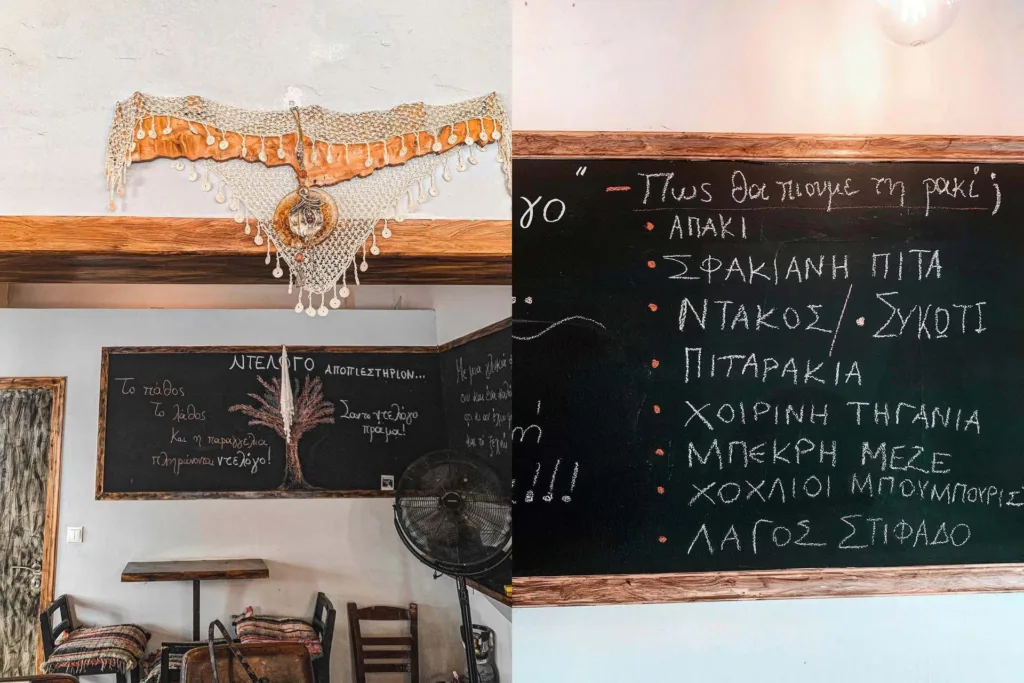 ΝΤΕΛΟΓΟ ΑΠΟΠΙΕΣΤΗΡΙΟΝ...
Το πάθος
Το λάθος
Και η παραγγελια
πληρώνονται ντελόγο!
Σαντο ντελόγο
πράμα!
Με μια
γο"
!!!
- Πως θα πιουμε τη ρακί;
• ΑΠΑΚΙ
• ΣΦΑΚΙΑΝΗ ΠΙΤΑ
• ΝΤΑΚΟΣ/• ΣΥΚΩΤΙ
• ΠΙΤΑΡΑΚΙΑ
• ΧΟΙΡΙΝΗ ΤΗΓΑΝΙΑ
• ΜΠΕΚΡΗ ΜΕΖΕ
• ΧΟΧΛΙΟΙ ΜΠΟΥΜΠΟΥΡΙΣ
• ΛΑΓΟΣ ΣΤΙΦΑΔΟ